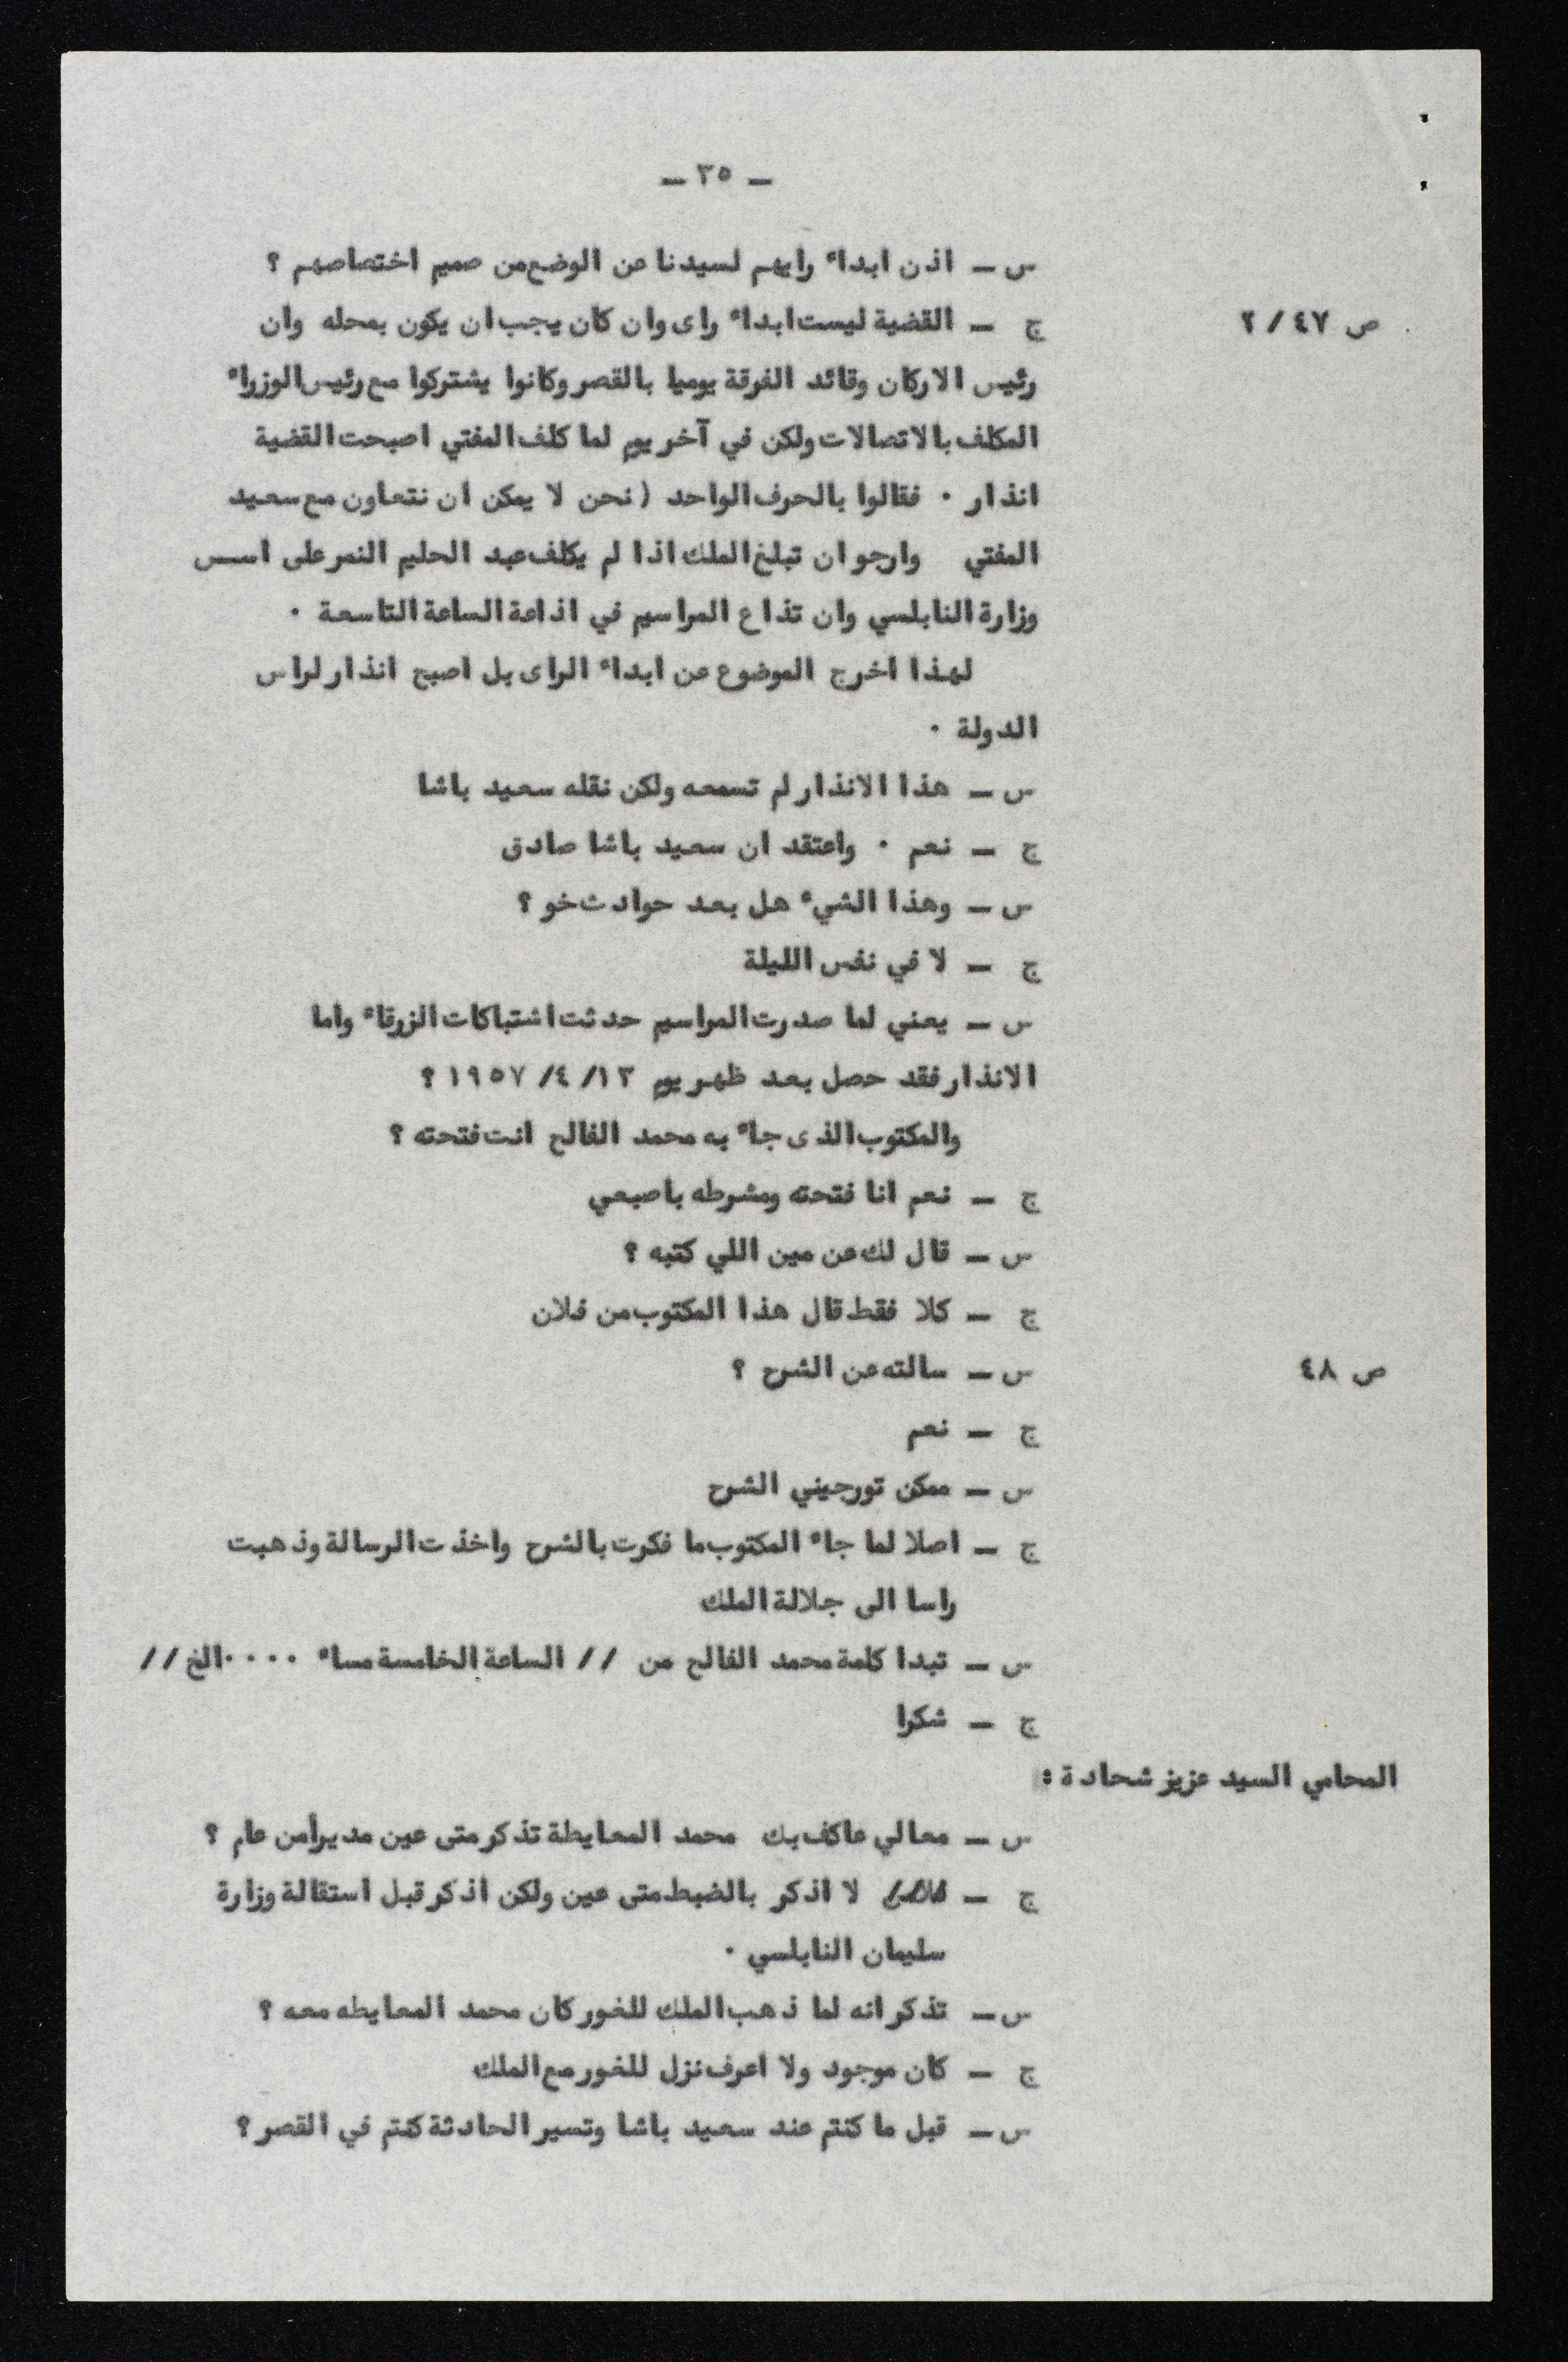 ـ ٣٥ ـ
س ـ اذن ابداء رايهم لسيدنا عن الوضع من صميم اختصاصهم ؟
ص ٤٧ / ٢ ج ـ القضية ليست ابداء راى وان كان يجب ان يكون بمحله وان
رئيس الاركان وقائد الفرقة يوميا بالقصر وكانوا يشتركوا مع رئيس الوزراء
المكلف بالاتصالات ولكن في آخر يوم لما كلف المفتي اصبحت القضية
انذار ٠ فقالوا بالحرف الواحد ( نحن لا يمكن ان نتعاون مع سعيد
المفتي وارجو ان تبلغ الملك اذا لم يكلف عبد الحليم النمر على اسس
وزارة النابلسي وان تذاع المراسيم في اذاعة الساعة التاسعة ٠
لهذا اخرج الموضوع عن ابداء الراى بل اصبح انذار لراس
الدولة ٠
س ـ هذا الانذار لم تسمعه ولكن نقله سعيد باشا
ج ـ نعم ٠ واعتقد ان سعيد باشا صادق
س ـ وهذا الشيء هل بعد حوادث خو ؟
ج ـ لا في نفس الليلة
س ـ يعني لما صدرت المراسيم حدثت اشتباكات الزرقاء واما
الانذار فقد حصل بعد ظهر يوم ١٣/ ٤/ ١٩٥٧ ؟
والمكتوب الذى جاء به محمد الفالح انت فتحته ؟
ج ـ نعم انا فتحته ومشرطه باصبعي
س ـ قال لك عن مين اللي كتبه ؟
ج ـ كلا فقط قال هذا المكتوب من فلان
ص ٤٨ س ـ سالته عن الشرح ؟
ج ـ نعم
س ـ ممكن تورجيني الشرح
ج ـ اصلا لما جاء المكتوب ما فكرت بالشرح واخذت الرسالة وذهبت
راسا الى جلالة الملك
س ـ تبدا كلمة محمد الفالح من // الساعة الخامسة مساء ٠٠٠٠الخ //
ج ـ شكرا
المحامي السيد عزيز شحادة :
س ـ معالي عاكف بك محمد المعايطة تذكر متى عين مدير أمن عام ؟
ج ـ لا اذكر بالضبط متى عين ولكن اذكر قبل استقالة وزارة
سليمان النابلسي ٠
س ـ تذكر انه لما ذهب الملك للغور كان محمد المعايطه معه ؟
ج ـ كان موجود ولا اعرف نزل للغور مع الملك
س ـ قبل ما كنتم عند سعيد باشا وتسير الحادثة كنتم في القصر ؟